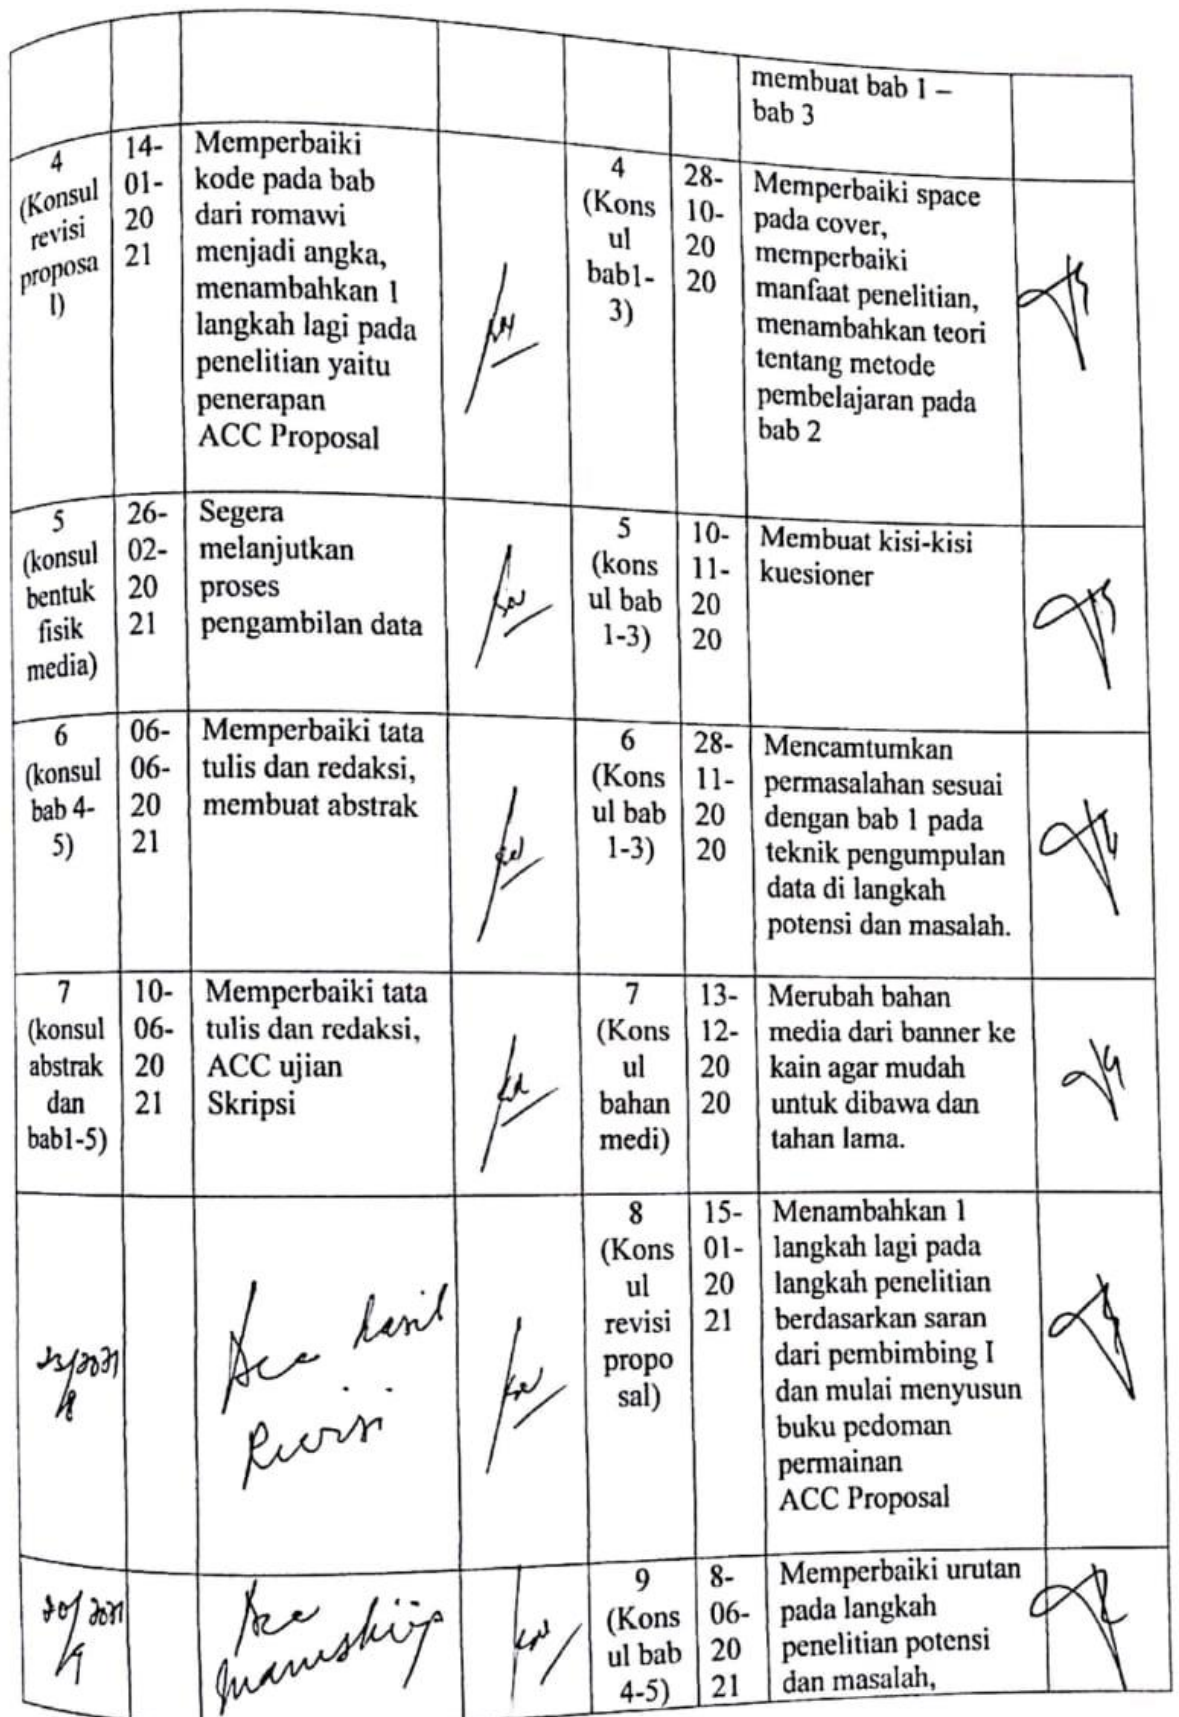 membuat bab 1 –
bab 3
4
(Konsul
revisi
proposa
l)
14-
01-
20
21
Memperbaiki
kode pada bab
dari romawi
menjadi angka,
menambahkan 1
langkah lagi pada
penelitian yaitu
penerapan
ACC Proposal
4
(Kons
ul
bab1-
3)
28-
10-
20
20
Memperbaiki space
pada cover,
memperbaiki
manfaat penelitian,
menambahkan teori
tentang metode
pembelajaran pada
bab 2
5
(konsul
bentuk
fisik
media)
26-
02-
20
21
Segera
melanjutkan
proses
pengambilan data
5
(kons
ul bab
1-3)
10-
11-
20
20
Membuat kisi-kisi
kuesioner
6
(konsul
bab 4-
5)
06-
06-
20
21
Memperbaiki tata
tulis dan redaksi,
membuat abstrak
6
(Kons
ul bab
1-3)
28-
11-
20
20
Mencamtumkan
permasalahan sesuai
dengan bab 1 pada
teknik pengumpulan
data di langkah
potensi dan masalah.
7
(konsul
abstrak
dan
bab1-5)
10-
06-
20
21
Memperbaiki tata
tulis dan redaksi,
ACC ujian
Skripsi
7
(Kons
ul
bahan
medi)
13-
12-
20
20
Merubah bahan
media dari banner ke
kain agar mudah
untuk dibawa dan
tahan lama.
Acc hasil
Revisi
8
(Kons
ul
revisi
propo
sal)
15-
01-
20
21
Menambahkan 1
langkah lagi pada
langkah penelitian
berdasarkan saran
dari pembimbing I
dan mulai menyusun
buku pedoman
permainan
ACC Proposal
Acc
9
(Kons
ul bab
4-5)
8-
06-
20
21
Memperbaiki urutan
pada langkah
penelitian potensi
dan masalah,